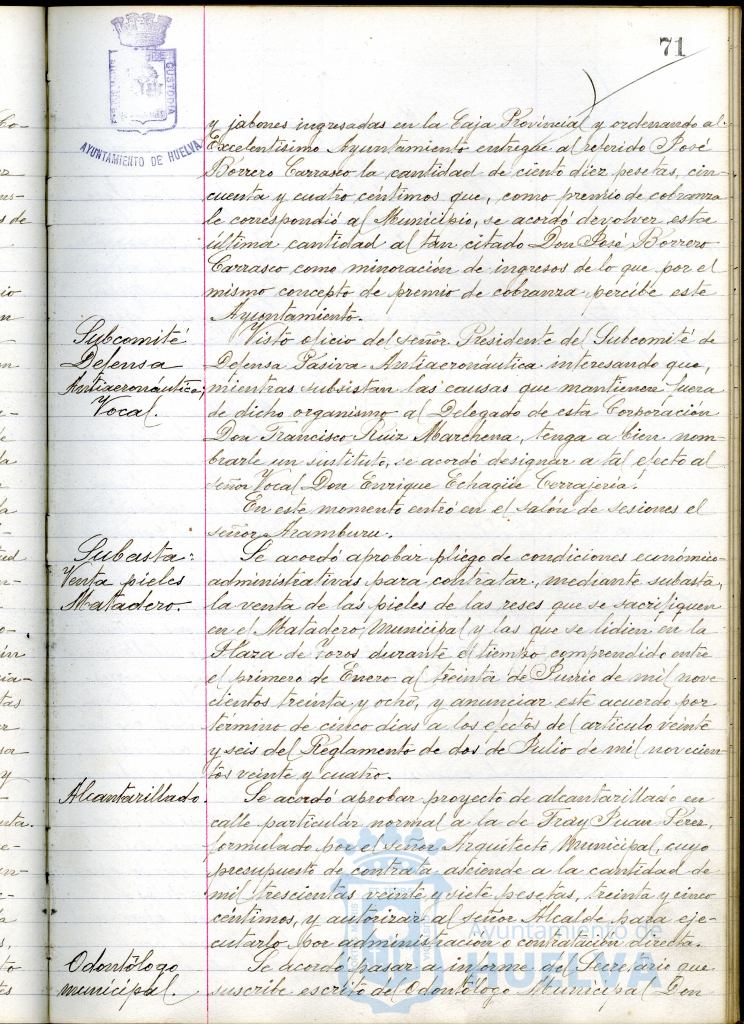 71
AYUNTAMIENTO DE HUELVA
y jabones ingresadas en la Caja Provincial y ordenando al
Excelentísimo Ayuntamiento entregue al referido José
Borrero Carrasco la cantidad de ciento diez pesetas, cin-
cuenta y cuatro céntimos que, como premio de cobranza
le correspondió al Municipio, se acordó devolver esta
última cantidad al tan citado Don José Borrero
Carrasco como minoración de ingresos de lo que por el
mismo concepto de premio de cobranza percibe este
Ayuntamiento.
Subcomité
Defensa
Antiaeronáutica;
Vocal.
Visto oficio del señor Presidente del Subcomité de
Defensa Pasiva Antiaeronáutica interesando que,
mientras subsistan las causas que mantienen fuera
de dicho organismo al Delegado de esta Corporación
Don Francisco Ruiz Marchena, tenga a bien nom-
brarle un sustituto, se acordó designar a tal efecto al
señor Vocal Don Enrique Echagüe Cerrajería.
En este momento entró en el salón de sesiones el
señor Aramburu.
Subasta:
Venta pieles
Matadero.
Se acordó aprobar pliego de condiciones económico-
administrativas para contratar, mediante subasta,
la venta de las pieles de las reses que se sacrifiquen
en el Matadero Municipal y las que se lidien en la
Plaza de Toros durante el tiempo comprendido entre
el primero de Enero al treinta de Junio de mil nove-
cientos treinta y ocho, y anunciar este acuerdo por
término de cinco días a los efectos del artículo veinte
y seis del Reglamento de dos de Julio de mil novecien-
tos veinte y cuatro.
Alcantarillado.
Se acordó aprobar proyecto de alcantarillado en
calle particular normal a la de Fray Juan Pérez,
formulado por el señor Arquitecto Municipal, cuyo
presupuesto de contrata asciende a la cantidad de
mil trescientas veinte y siete pesetas, treinta y cinco
céntimos, y autorizar al señor Alcalde para eje-
cutarlo por administración o contratación directa.
Odontólogo
municipal.
Se acordó pasar a informe del Secretario que
suscribe escrito del Odontólogo Municipal Don
Ayuntamiento de
HUELVA